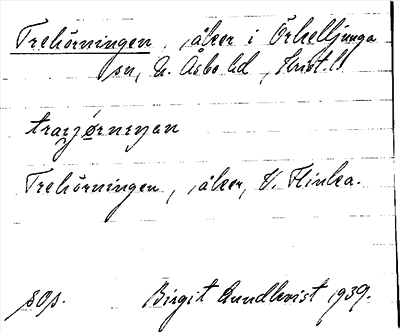 Trehörningen, åker i Örkelljunga
sn, N. Åsbo hd, Krist. l
Trehörningen, åker, V. Flinka.
sop. Birgit Lundkvist 1939.